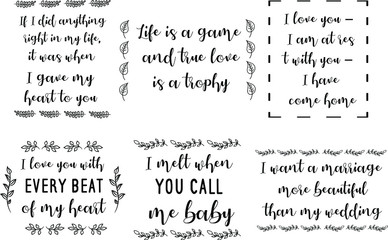 If I did anything
right in my life,
it was when
I gave my
heart to you
Life is a game
and true love
is a trophy
I love you –
I am at res
t with you –
I have
come home
I love you with
EVERY BEAT
of my heart
I melt when
YOU CALL
me baby
I want a marriage
more beautiful
than my wedding